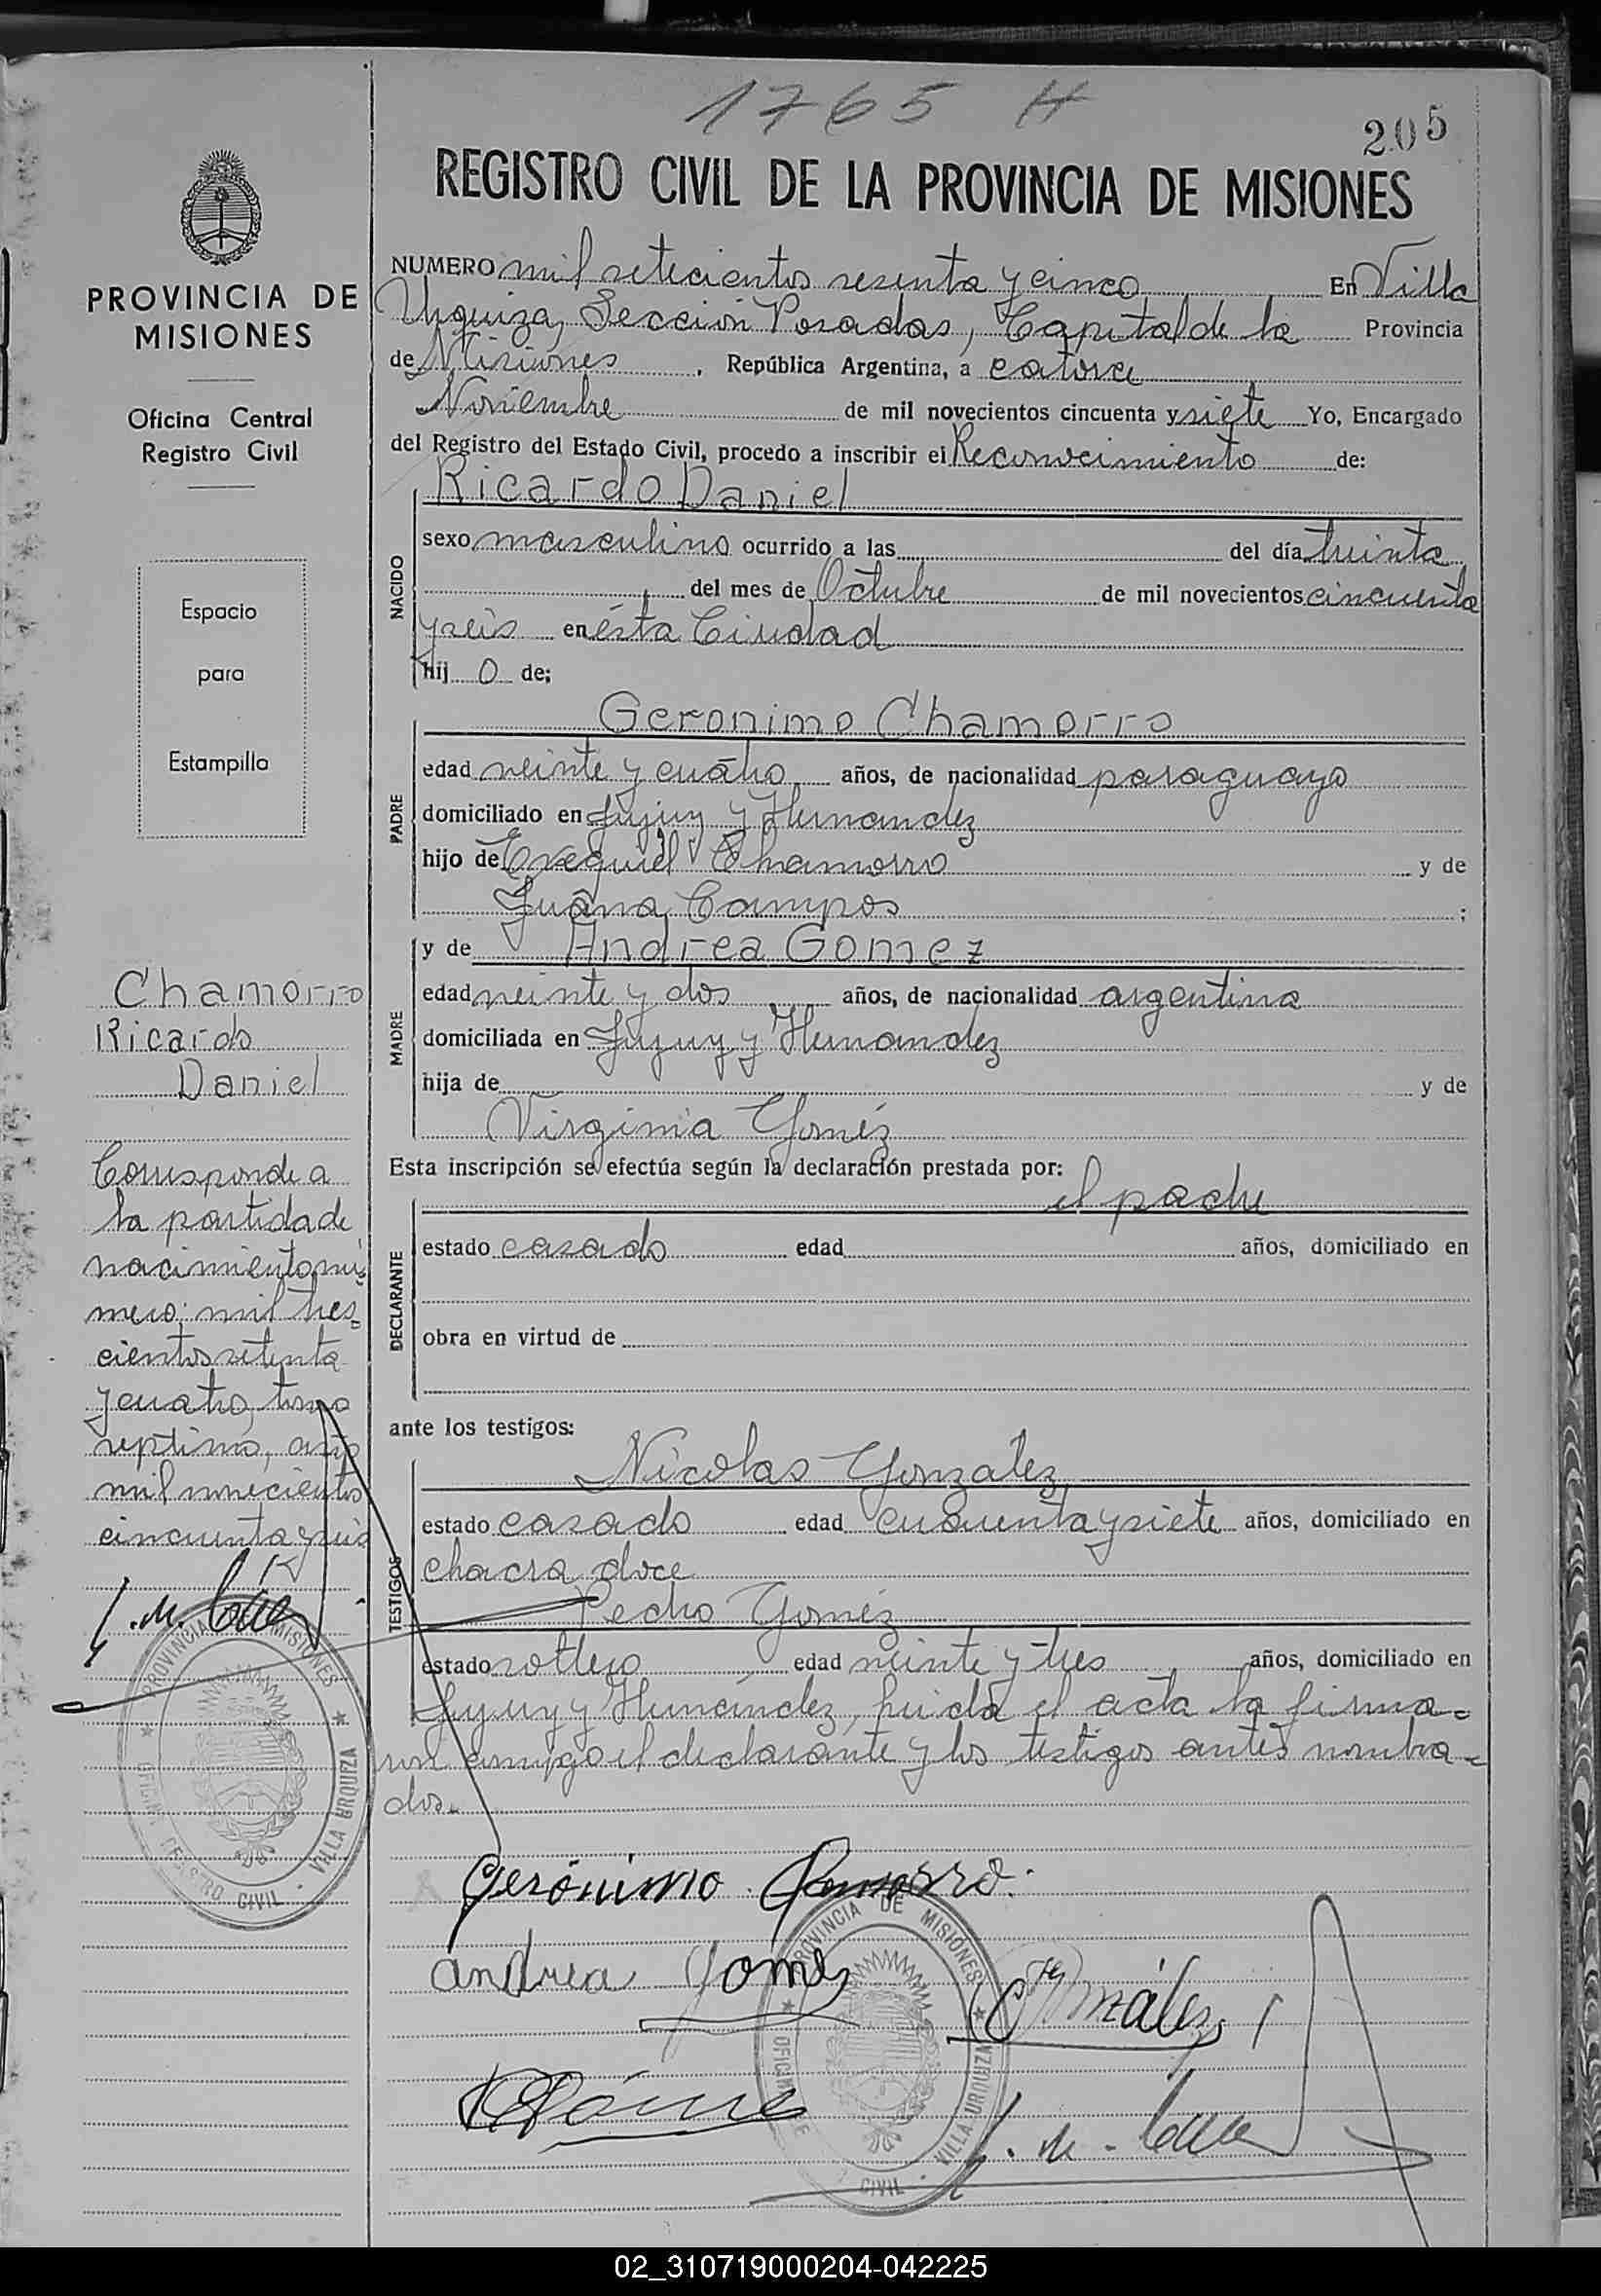 1765 H
205
REGISTRO CIVIL DE LA PROVINCIA DE MISIONES
PROVINCIA DE
MISIONES
Oficina Central
Registro Civil
Espacio
para
Estampilla
Chamorro
Ricardo
Daniel
Corresponde a
la partida de
nacimiento nú-
mero: mil tres-
cientos setenta
y cuatro, tomo
septimo, año
mil novecientos
cincuenta y seis
PROVINCIA DE MISIONES
OFICINA REGISTRO CIVIL · VILLA URQUIZA
NUMERO mil setecientos sesenta y cinco En Villa
Urquiza, Sección Posadas, Capital de la Provincia
de Misiones, República Argentina, a catorce
Noviembre de mil novecientos cincuenta y siete Yo, Encargado
del Registro del Estado Civil, procedo a inscribir el Reconocimiento de:
NACIDO
Ricardo Daniel
sexo masculino ocurrido a las del día treinta
del mes de Octubre de mil novecientos cincuenta
y seis en ésta Ciudad
hij o de;
PADRE
Geronimo Chamorro
edad veinte y cuatro años, de nacionalidad paraguayo
domiciliado en Jujuy y Hernandez
hijo de Exequiel Chamorro y de
Juana Campos ;
MADRE
y de Andrea Gomez
edad veinte y dos años, de nacionalidad argentina
domiciliada en Jujuy y Hernandez
hija de y de
Virginia Goméz
Esta inscripción se efectúa según la declaración prestada por:
el padre
DECLARANTE
estado casado edad años, domiciliado en
obra en virtud de
ante los testigos:
TESTIGOS
Nicolas Gonzalez
estado casado edad cuarenta y siete años, domiciliado en
chacra doce
Pedro Goméz
estado soltero edad veinte y tres años, domiciliado en
Jujuy y Hernández, leida el acta la firma-
ron conmigo el declarante y los testigos antes nombra-
dos.
Gerónimo Chamorro.
Andrea Gomez
González
PROVINCIA DE MISIONES
OFICINA CIVIL · VILLA URQUIZA
02_310719000204-042225